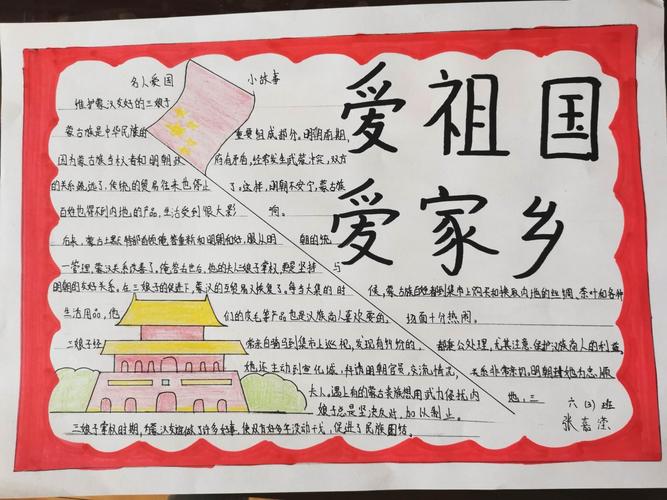 爱祖国
爱家乡
名人爱国 小故事
维护蒙汉友好的三娘子
蒙古族是中华民族的 重要组成部分。明朝前期,
因为蒙古族当权者和明朝政 府有矛盾,经常发生武装冲突,双方
的关系疏远了,传统的贸易往来也停止 了。这样,明朝不安宁,蒙古族
百姓也得不到内地的产品,生活受到很大影 响。
后来,蒙古土默特部首领俺答重新和明朝和好,服从明 朝的统
一管理,蒙汉关系改善了。俺答去世后,他的夫人三娘子掌权,更是坚持 与
明朝友好关系。在三娘子的促进下,蒙汉的互贸易又恢复了。每当大集的 时 候,蒙古族百姓都到集市上购买和换取内地的丝绸、茶叶和各种
生活用品,他 们的皮毛等产品也是汉族商人喜欢要的, 场面十分热闹。
三娘子经 常亲自骑马到集市上巡视,发现有纠纷的, 都秉公处理,尤其注意保护汉族商人的利益。
她还主动到宣化城,拜访明朝官员,交流情况, 关系非常亲切。明朝封她为忠顺
夫人。遇上有的蒙古贵族想用武力侵扰内 地,三
娘子总是坚决反对,加以制止。
三娘子掌权时期,为蒙汉友谊做了许多好事,使双方好多年没动干戈,促进了民族团结。
六(3)班
张嘉滢